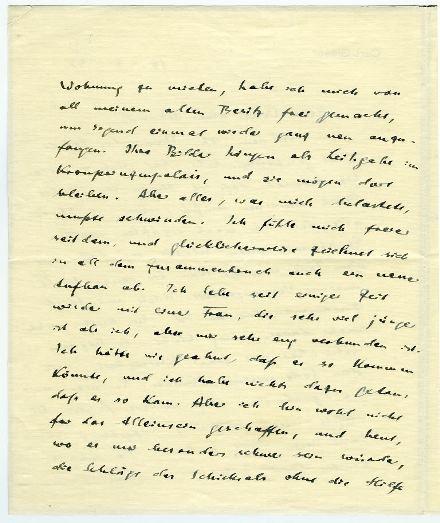 Wohnung zu mieten, habe ich mich von
all meinem alten Besitz frei gemacht,
um irgend einmal wieder ganz neu anzu-
fangen. Ihre Bilder hängen als Leihgabe im
Kronprinzenpalais, und sie mögen dort
bleiben. Aber alles, was mich belastete,
musste schwinden. Ich fühle mich freier
seitdem, und glücklicherweise zeichnet sich
in all dem Zusammenbruch auch ein neuer
Aufbau ab. Ich lebe seit einiger Zeit
wieder mit einer Frau, die sehr viel jünger
ist als ich, aber mir sehr eng verbunden ist.
Ich hätte nie geahnt, daß es so kommen
könnte, und ich habe nichts dazu getan,
daß es so kam. Aber ich bin wohl nicht
für das Alleinsein geschaffen, und heut,
wo es mir besonders schwer sein würde,
die Schläge des Schicksals ohne die Hilfe